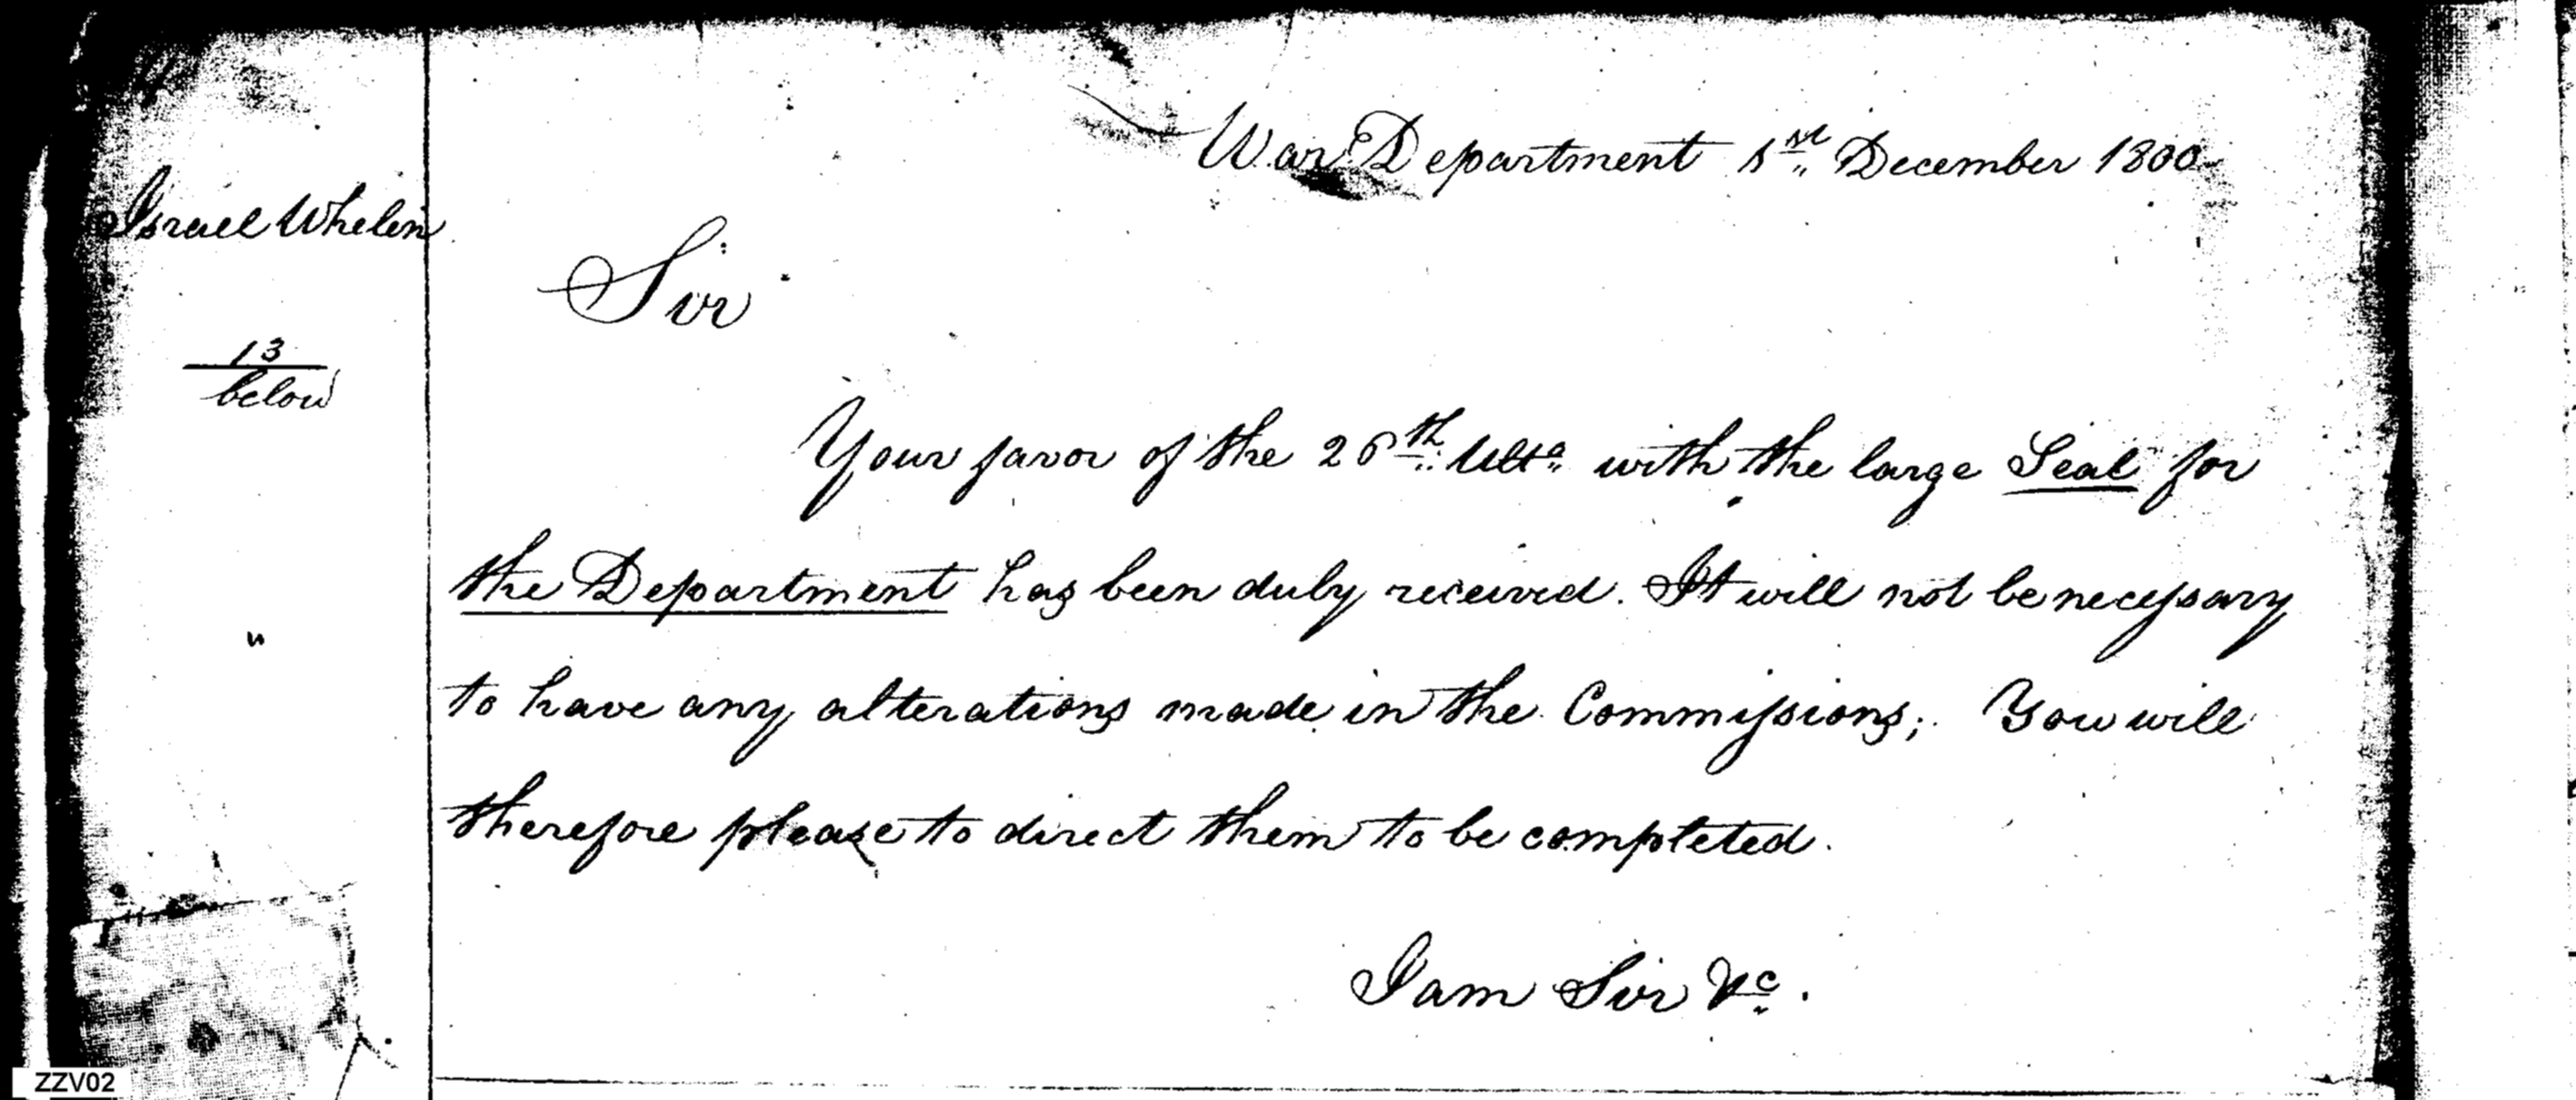 War Department 1st December 1800
Israel Whelen
Sir
13
below
Your favor of the 26th Ulto with the large Seal for
the Department has been duly received. It will not be necessary
"
to have any alterations made in the Commissions; You will
therefore please to direct them to be completed.
I am Sir &c.
ZZV02